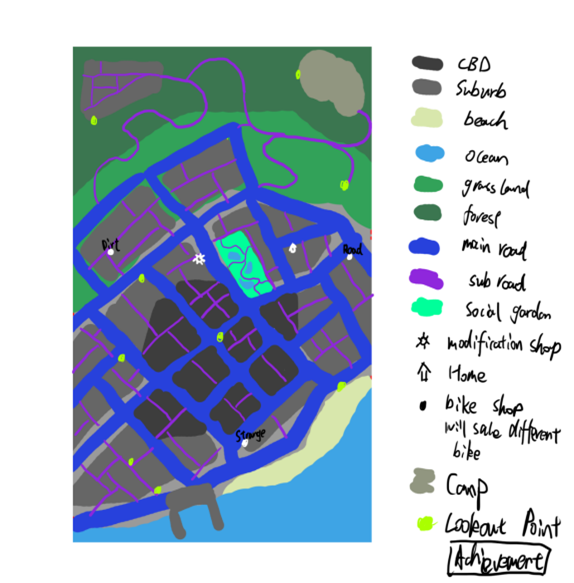 CBD
Suburb
beach
ocean
grassland
forest
main road
sub road
Social garden
modification shop
Home
bike shop
will sale different
bike
Camp
Lookout Point
Achievement
Dirt
Road
Strange